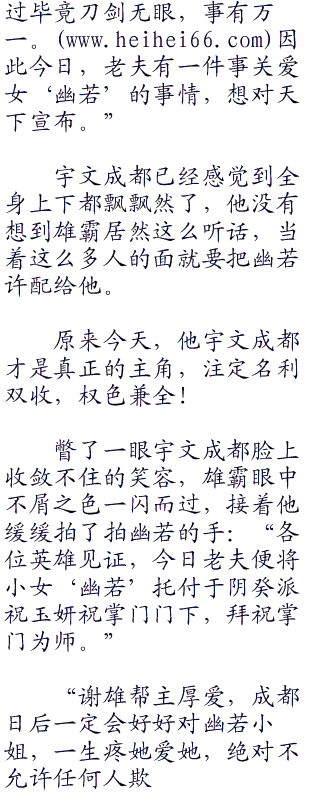 过毕竟刀剑无眼，事有万
一。(www.heihei66.com)因
此今日，老夫有一件事关爱
女‘幽若’的事情，想对天
下宣布。”
宇文成都已经感觉到全
身上下都飘飘然了，他没有
想到雄霸居然这么听话，当
着这么多人的面就要把幽若
许配给他。
原来今天，他宇文成都
才是真正的主角，注定名利
双收，权色兼全！
瞥了一眼宇文成都脸上
收敛不住的笑容，雄霸眼中
不屑之色一闪而过，接着他
缓缓拍了拍幽若的手：“各
位英雄见证，今日老夫便将
小女‘幽若’托付于阴癸派
祝玉妍祝掌门门下，拜祝掌
门为师。”
“谢雄帮主厚爱，成都
日后一定会好好对幽若小
姐，一生疼她爱她，绝对不
允许任何人欺